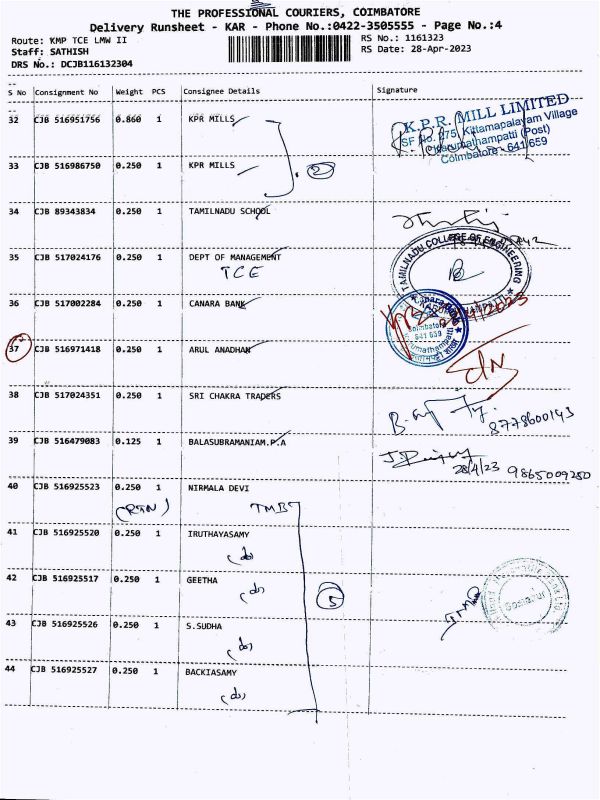 THE PROFESSIONAL COURIERS, COIMBATORE
Delivery Runsheet - KAR - Phone No.:0422-3505555 - Page No.:4
Route: KMP TCE LMW II RS No.: 1161323
Staff: SATHISH RS Date: 28-Apr-2023
DRS No.: DCJB116132304
S No Consignment No Weight PCS Consignee Details Signature
32 CJB 516951756 0.860 1 KPR MILLS
K.P.R. MILL LIMITED
SF No. 275, Kittampalayam Village
Karumathampatti (Post)
Coimbatore - 641 659
33 CJB 516986750 0.250 1 KPR MILLS
2
34 CJB 89343834 0.250 1 TAMILNADU SCHOOL
35 CJB 517024176 0.250 1 DEPT OF MANAGEMENT
TCE
TAMILNADU COLLEGE OF ENGINEERING
36 CJB 517002284 0.250 1 CANARA BANK
Coimbatore
641 659
37 CJB 516971418 0.250 1 ARUL ANADHAN
38 CJB 517024351 0.250 1 SRI CHAKRA TRADERS
8778600143
39 CJB 516479083 0.125 1 BALASUBRAMANIAM.P.A
28/4/23 9865009250
40 CJB 516925523 0.250 1 NIRMALA DEVI
(RTN) TMB
41 CJB 516925520 0.250 1 IRUTHAYASAMY
(do)
42 CJB 516925517 0.250 1 GEETHA
(do) 5
43 CJB 516925526 0.250 1 S.SUDHA
(do)
44 CJB 516925527 0.250 1 BACKIASAMY
(do)